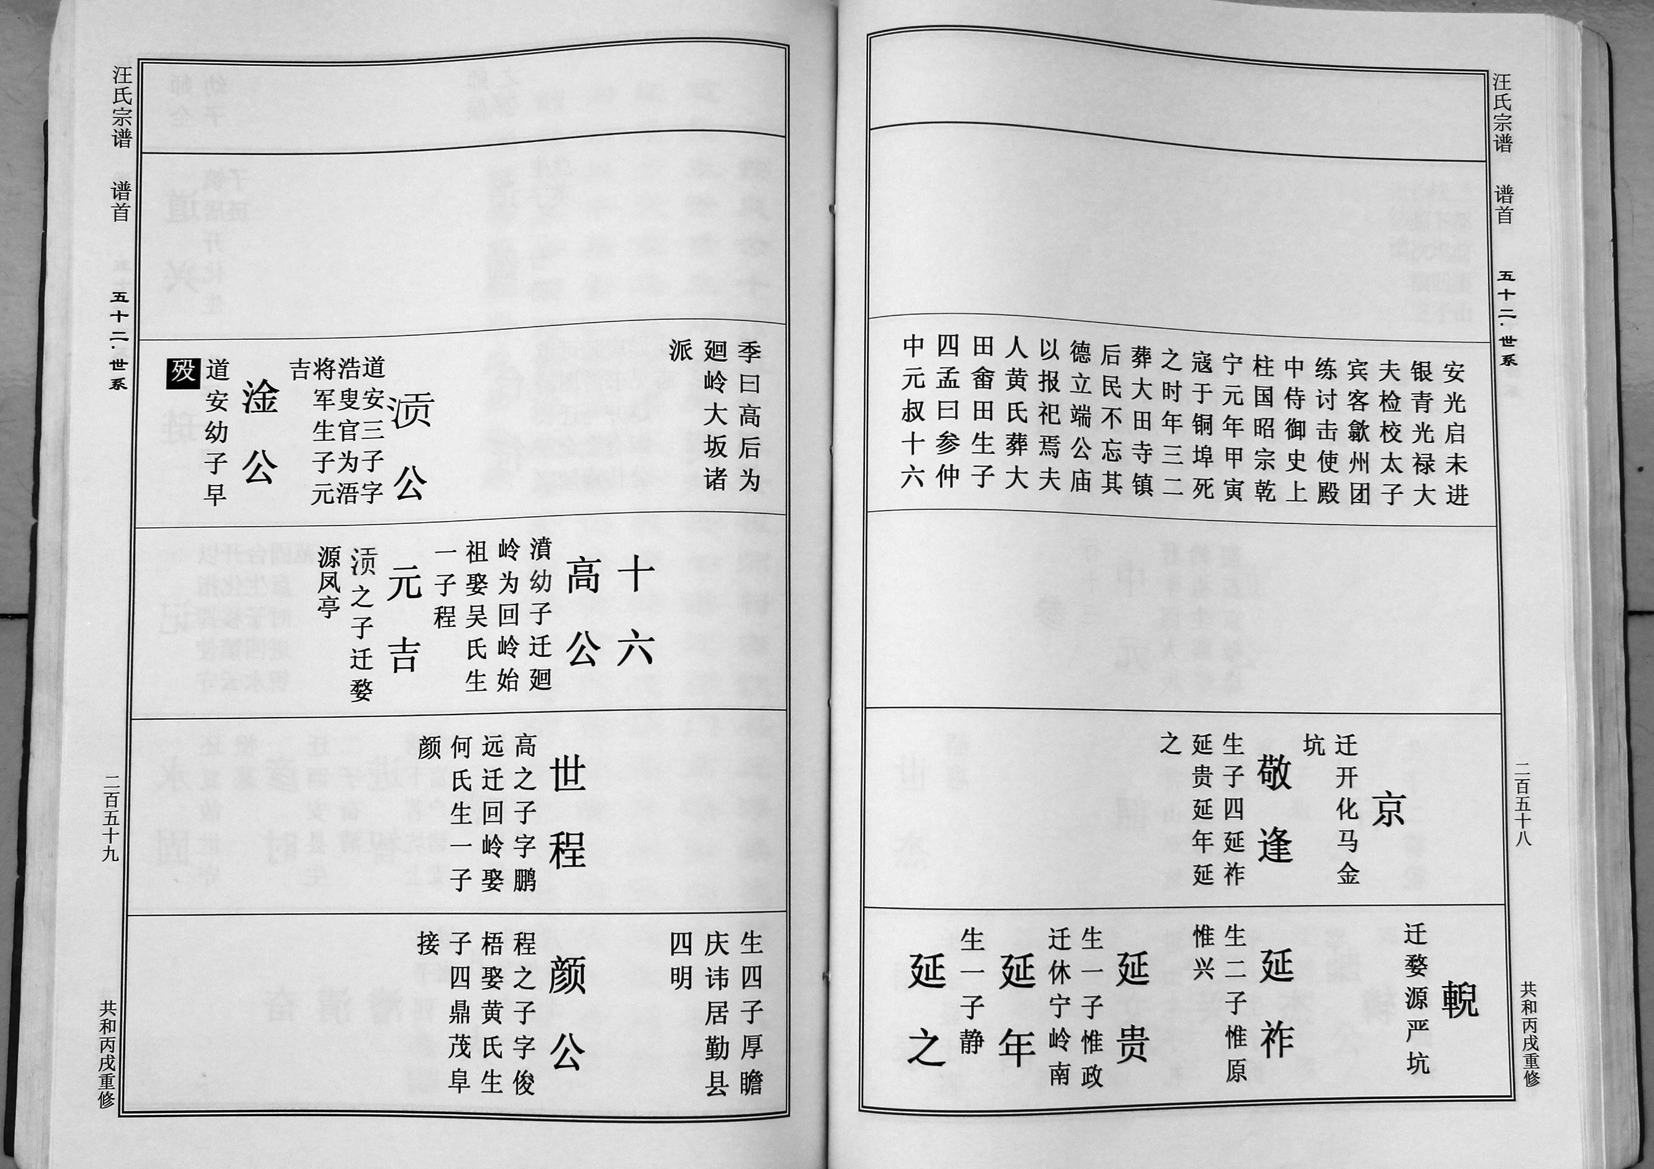 汪氏宗谱 谱首 五十二·世系 二百五十八 共和丙戌重修
安光启未进
银青光禄大
夫检校太子
宾客歙州团
练讨击使殿
中侍御史上
柱国昭宗乾
宁元年甲寅
寇于铜埠死
之时年三二
葬大田寺镇
后民不忘其
德立端公庙
以报祀焉夫
人黄氏葬大
田畲田生子
四孟曰参仲
中元叔十六
京
迁开化马金
坑
敬逢
生子四延祚
延贵延年延
之
輗
迁婺源严坑
延祚
生二子惟原
惟兴
延贵
生一子惟政
迁休宁岭南
延年
生一子静
延之
季曰高后为
廻岭大坂诸
派
澒公
道安三子字
浩叟官为浯
将军生子元
吉
淦公
道安幼子早
殁
十六
高公
濆幼子迁廻
岭为回岭始
祖娶吴氏生
一子程
元吉
澒之子迁婺
源凤亭
世程
高之子字鹏
远迁回岭娶
何氏生一子
颜
生四子厚瞻
庆讳居勤县
四明
颜公
程之子字俊
梧娶黄氏生
子四鼎茂阜
接
汪氏宗谱 谱首 五十二·世系 二百五十九 共和丙戌重修